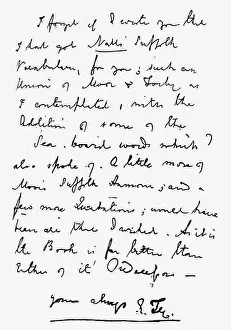 I forget if I wrote you the
I had got Nall's Suffolk
Vocabulary for you; such an
Union of Moor & Forby as
I contemplated, with the
Addition of some of the
Sea-board words which I
also spoke of. A little more of
Moor's Suffolk humour; and a
few more Quotations; would have
been the Desired. As it is
the Book is far better than
either of its Predecessors —
yours always E. FG.